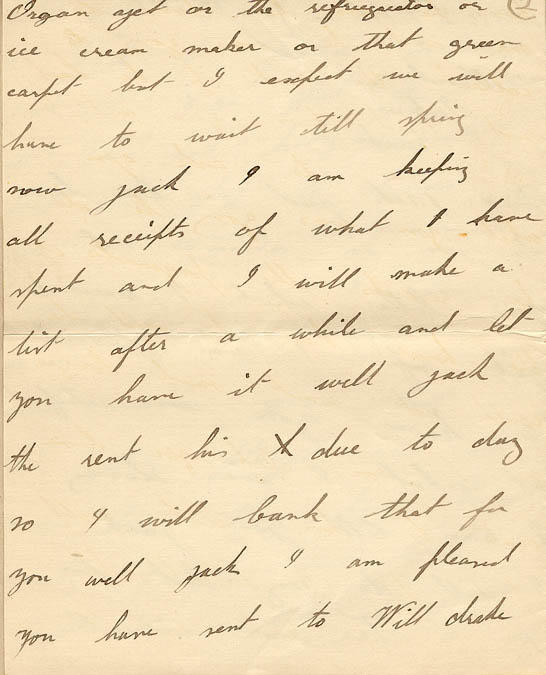 2
Organ yet or the refriguator or
ice cream maker or that green
carpet but I expect we will
have to wait till spring
now jack I am keeping
all receipts of what I have
spent and I will make a
list after a while and let
you have it well jack
the rent his due to day
so I will bank that for
you well jack I am pleased
you have sent to Will drake